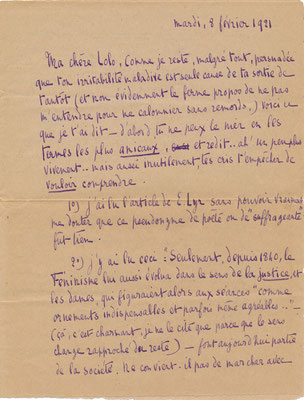 mardi, 8 février 1921
Ma chère Lolo, comme je reste, malgré tout, persuadée
que ton irritabilité maladive est seule cause de ta sortie de
tantôt (et non évidemment le ferme propos de ne pas
m'entendre pour me calomnier sans remords,) voici ce
que je t'ai dit — d'abord, tu ne peux le nier en les
termes les plus amicaux, et redit.. al' un peu plus
vivement.. mais assez inutilement tes cris t'empêcher de
vouloir comprendre.
1º) j'ai lu l'article de E. Lyr sans pouvoir vraiment
me douter que ce pseudonyme de poète ou de "suffragente"
fut tien.
2º) j'y ai lu ceci : "Seulement, depuis 1860, le
Féminisme lui aussi évolua dans le sens de la justice, et
les dames, qui figuraient alors aux séances "comme
ornements indispensables et parfois même agréables.." —
(ça, c'est charmant, je ne le cite que parce que le sens
change rapproché du reste) — font aujourd'hui partie
de la société. Ne convient-il pas de marcher avec